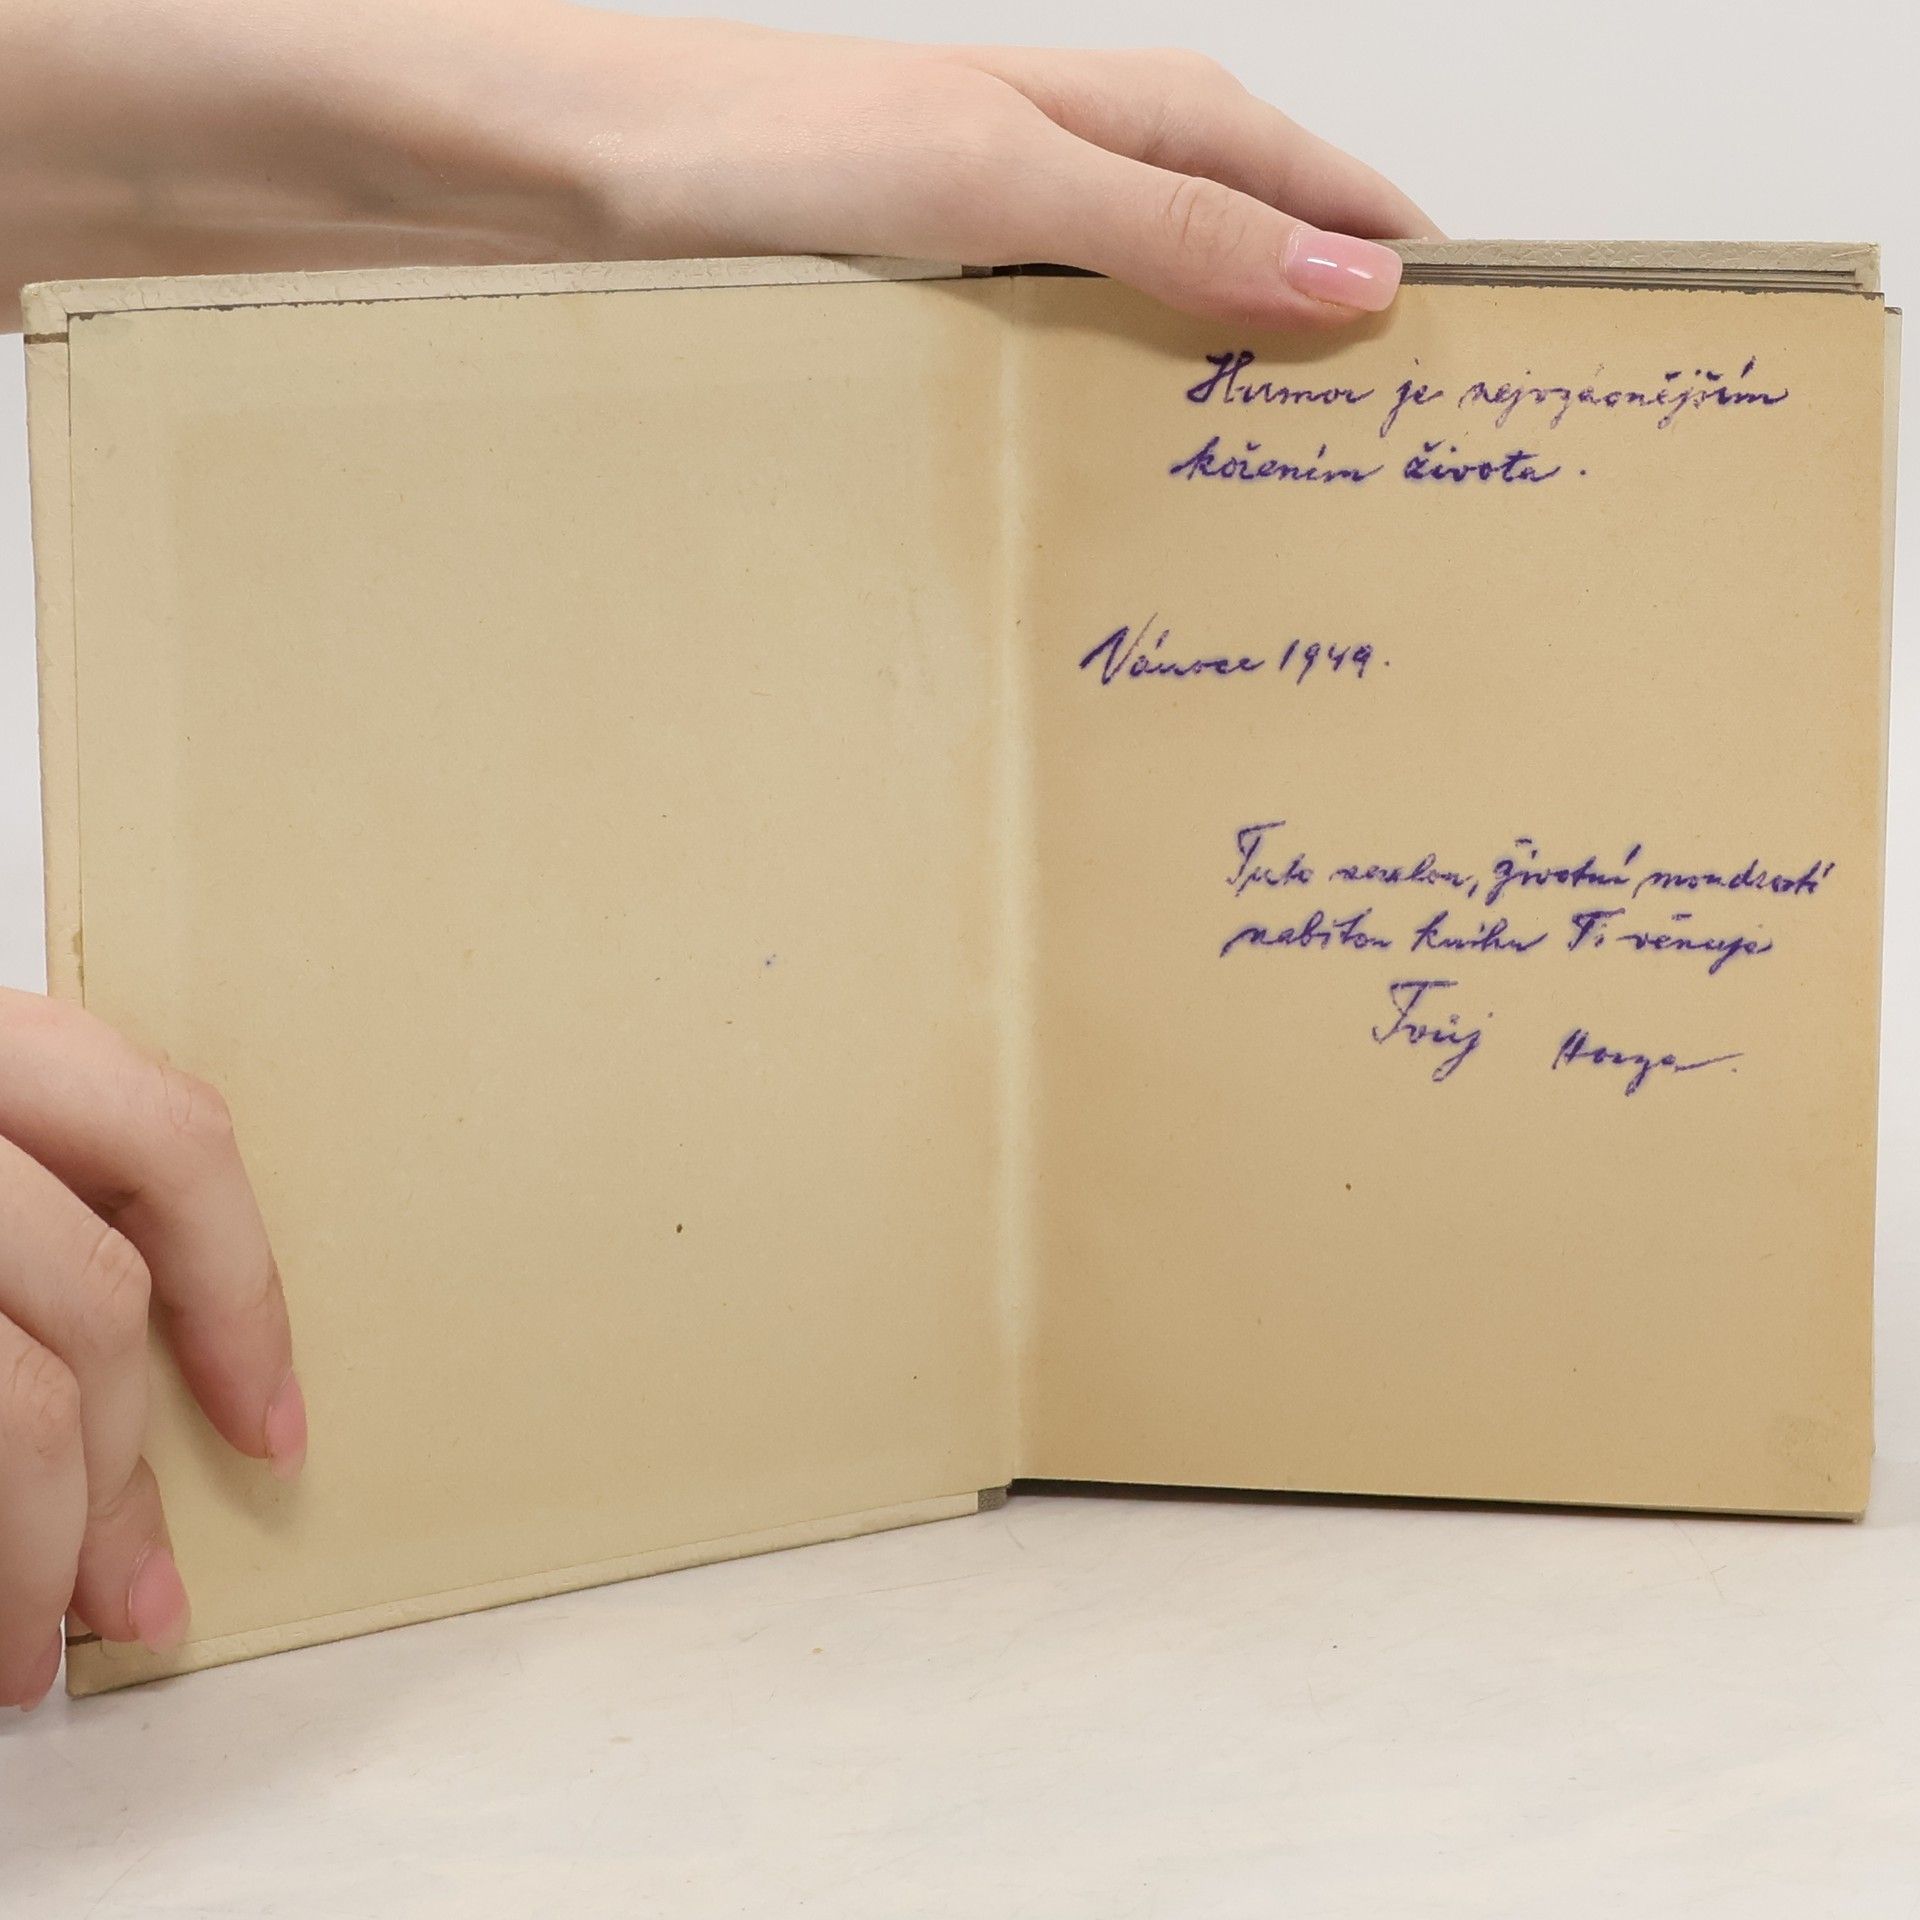 Humor je nejvzácnějším
kořením života.
Vánoce 1949.
Tuto veselou, životní moudrostí
nabitou knihu Ti věnuje
Tvůj Honza.